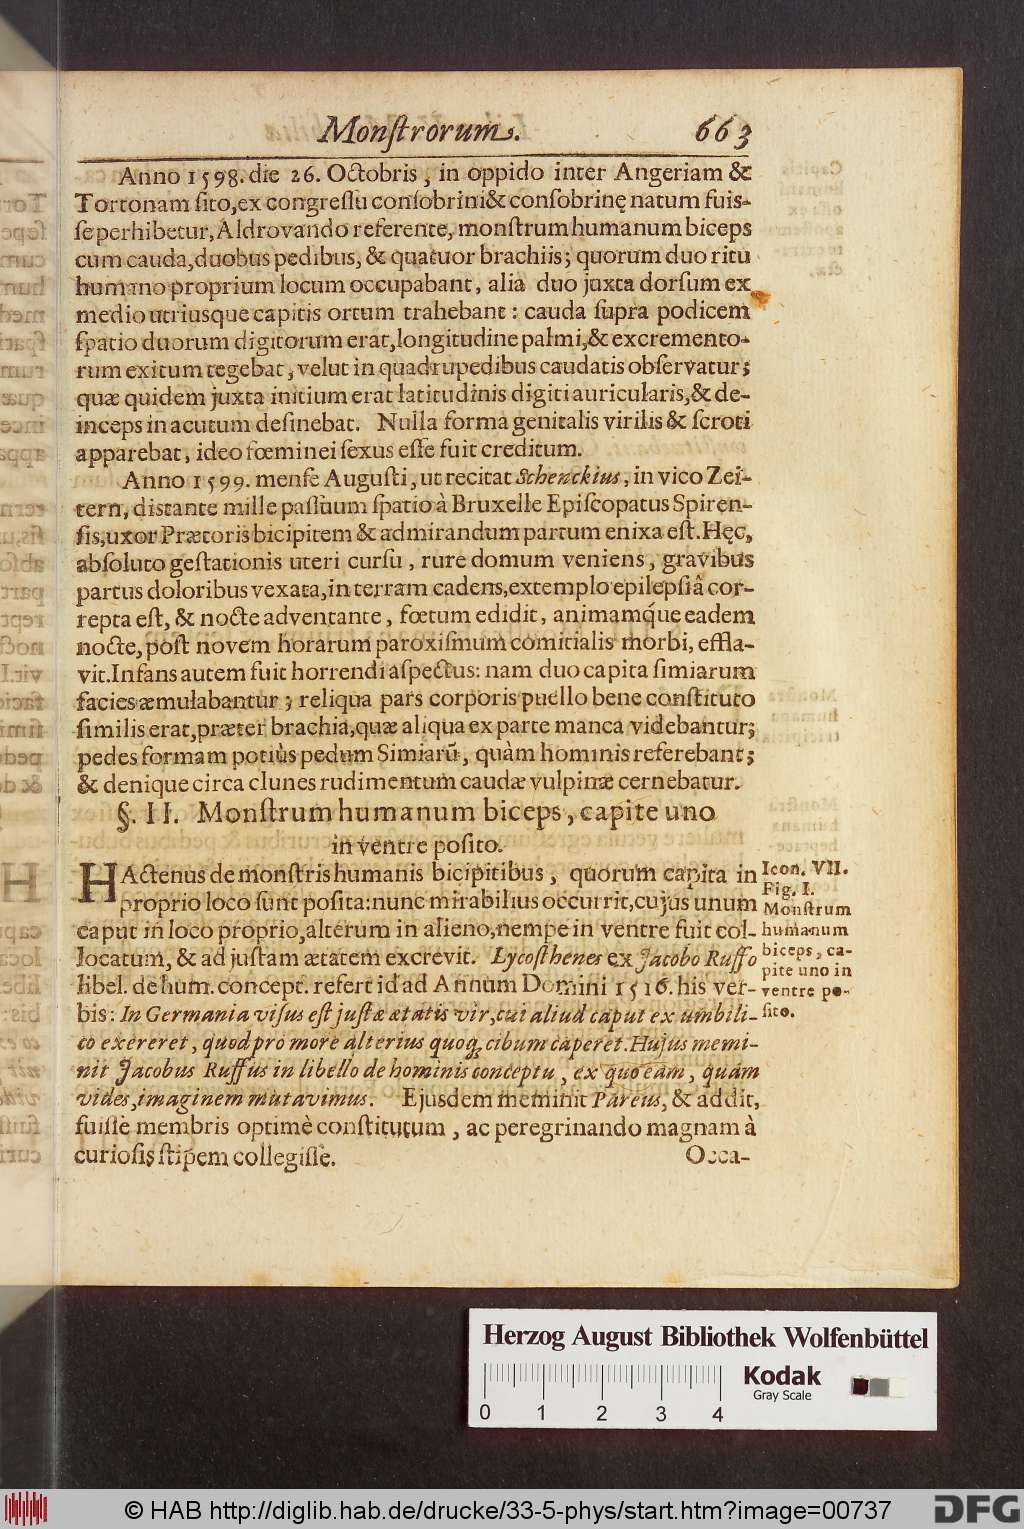 Monſtrorum. 663
Anno 1598. die 26. Octobris, in oppido inter Angeriam &
Tortonam ſito, ex congreſſu conſobrini & conſobrinę natum fuiſ-
ſe perhibetur, Aldrovando referente, monſtrum humanum biceps
cum cauda, duobus pedibus, & quatuor brachiis; quorum duo ritu
humano proprium locum occupabant, alia duo juxta dorſum ex
medio utriusque capitis ortum trahebant: cauda ſupra podicem
ſpatio duorum digitorum erat, longitudine palmi, & excremento-
rum exitum tegebat, velut in quadrupedibus caudatis obſervatur;
quæ quidem juxta initium erat latitudinis digiti auricularis, & de-
inceps in acutum deſinebat. Nulla forma genitalis virilis & ſcroti
apparebat, ideo fœminei ſexus eſſe fuit creditum.
Anno 1599. menſe Auguſti, ut recitat Schenckius, in vico Zei-
tern, distante mille paſſuum ſpatio à Bruxelle Epiſcopatus Spiren-
ſis, uxor Prætoris bicipitem & admirandum partum enixa eſt. Hęc,
abſoluto geſtationis uteri curſu, rure domum veniens, gravibus
partus doloribus vexata, in terram cadens, extemplo epilepſiâ cor-
repta eſt, & nocte adventante, fœtum edidit, animamq́ue eadem
nocte, poſt novem horarum paroxiſmum comitialis morbi, effla-
vit. Infans autem fuit horrendi aſpectus: nam duo capita ſimiarum
facies æmulabantur; reliqua pars corporis puello bene conſtituto
ſimilis erat, præter brachia, quæ aliqua ex parte manca videbantur;
pedes formam potiùs pedum Simiarū, quàm hominis referebant;
& denique circa clunes rudimentum caudæ vulpinæ cernebatur.
§. II. Monſtrum humanum biceps, capite uno
in ventre poſito.
HActenus de monſtris humanis bicipitibus, quorum capita in
proprio loco ſunt poſita: nunc mirabilius occurrit, cujus unum
caput in loco proprio, alterum in alieno, nempe in ventre fuit col-
locatum, & ad juſtam ætatem excrevit. Lycoſthenes ex Jacobo Ruffo
libel. de hum. concept. refert id ad Annum Domini 1516. his ver-
bis: In Germania viſus eſt juſtæ ætatis vir, cui aliud caput ex umbili-
co exereret, quod pro more alterius quoq; cibum caperet. Hujus memi-
nit Jacobus Ruffus in libello de hominis conceptu, ex quo eam, quam
vides, imaginem mutavimus. Ejusdem meminit Pareus, & addit,
fuiſſe membris optimè conſtitutum, ac peregrinando magnam à
curioſis ſtipem collegiſſe.
Occa-
Icon. VII.
Fig. I.
Monſtrum
humanum
biceps, ca-
pite uno in
ventre po-
ſito.
Herzog August Bibliothek Wolfenbüttel
Kodak
Gray Scale
0 1 2 3 4
© HAB http://diglib.hab.de/drucke/33-5-phys/start.htm?image=00737
DFG